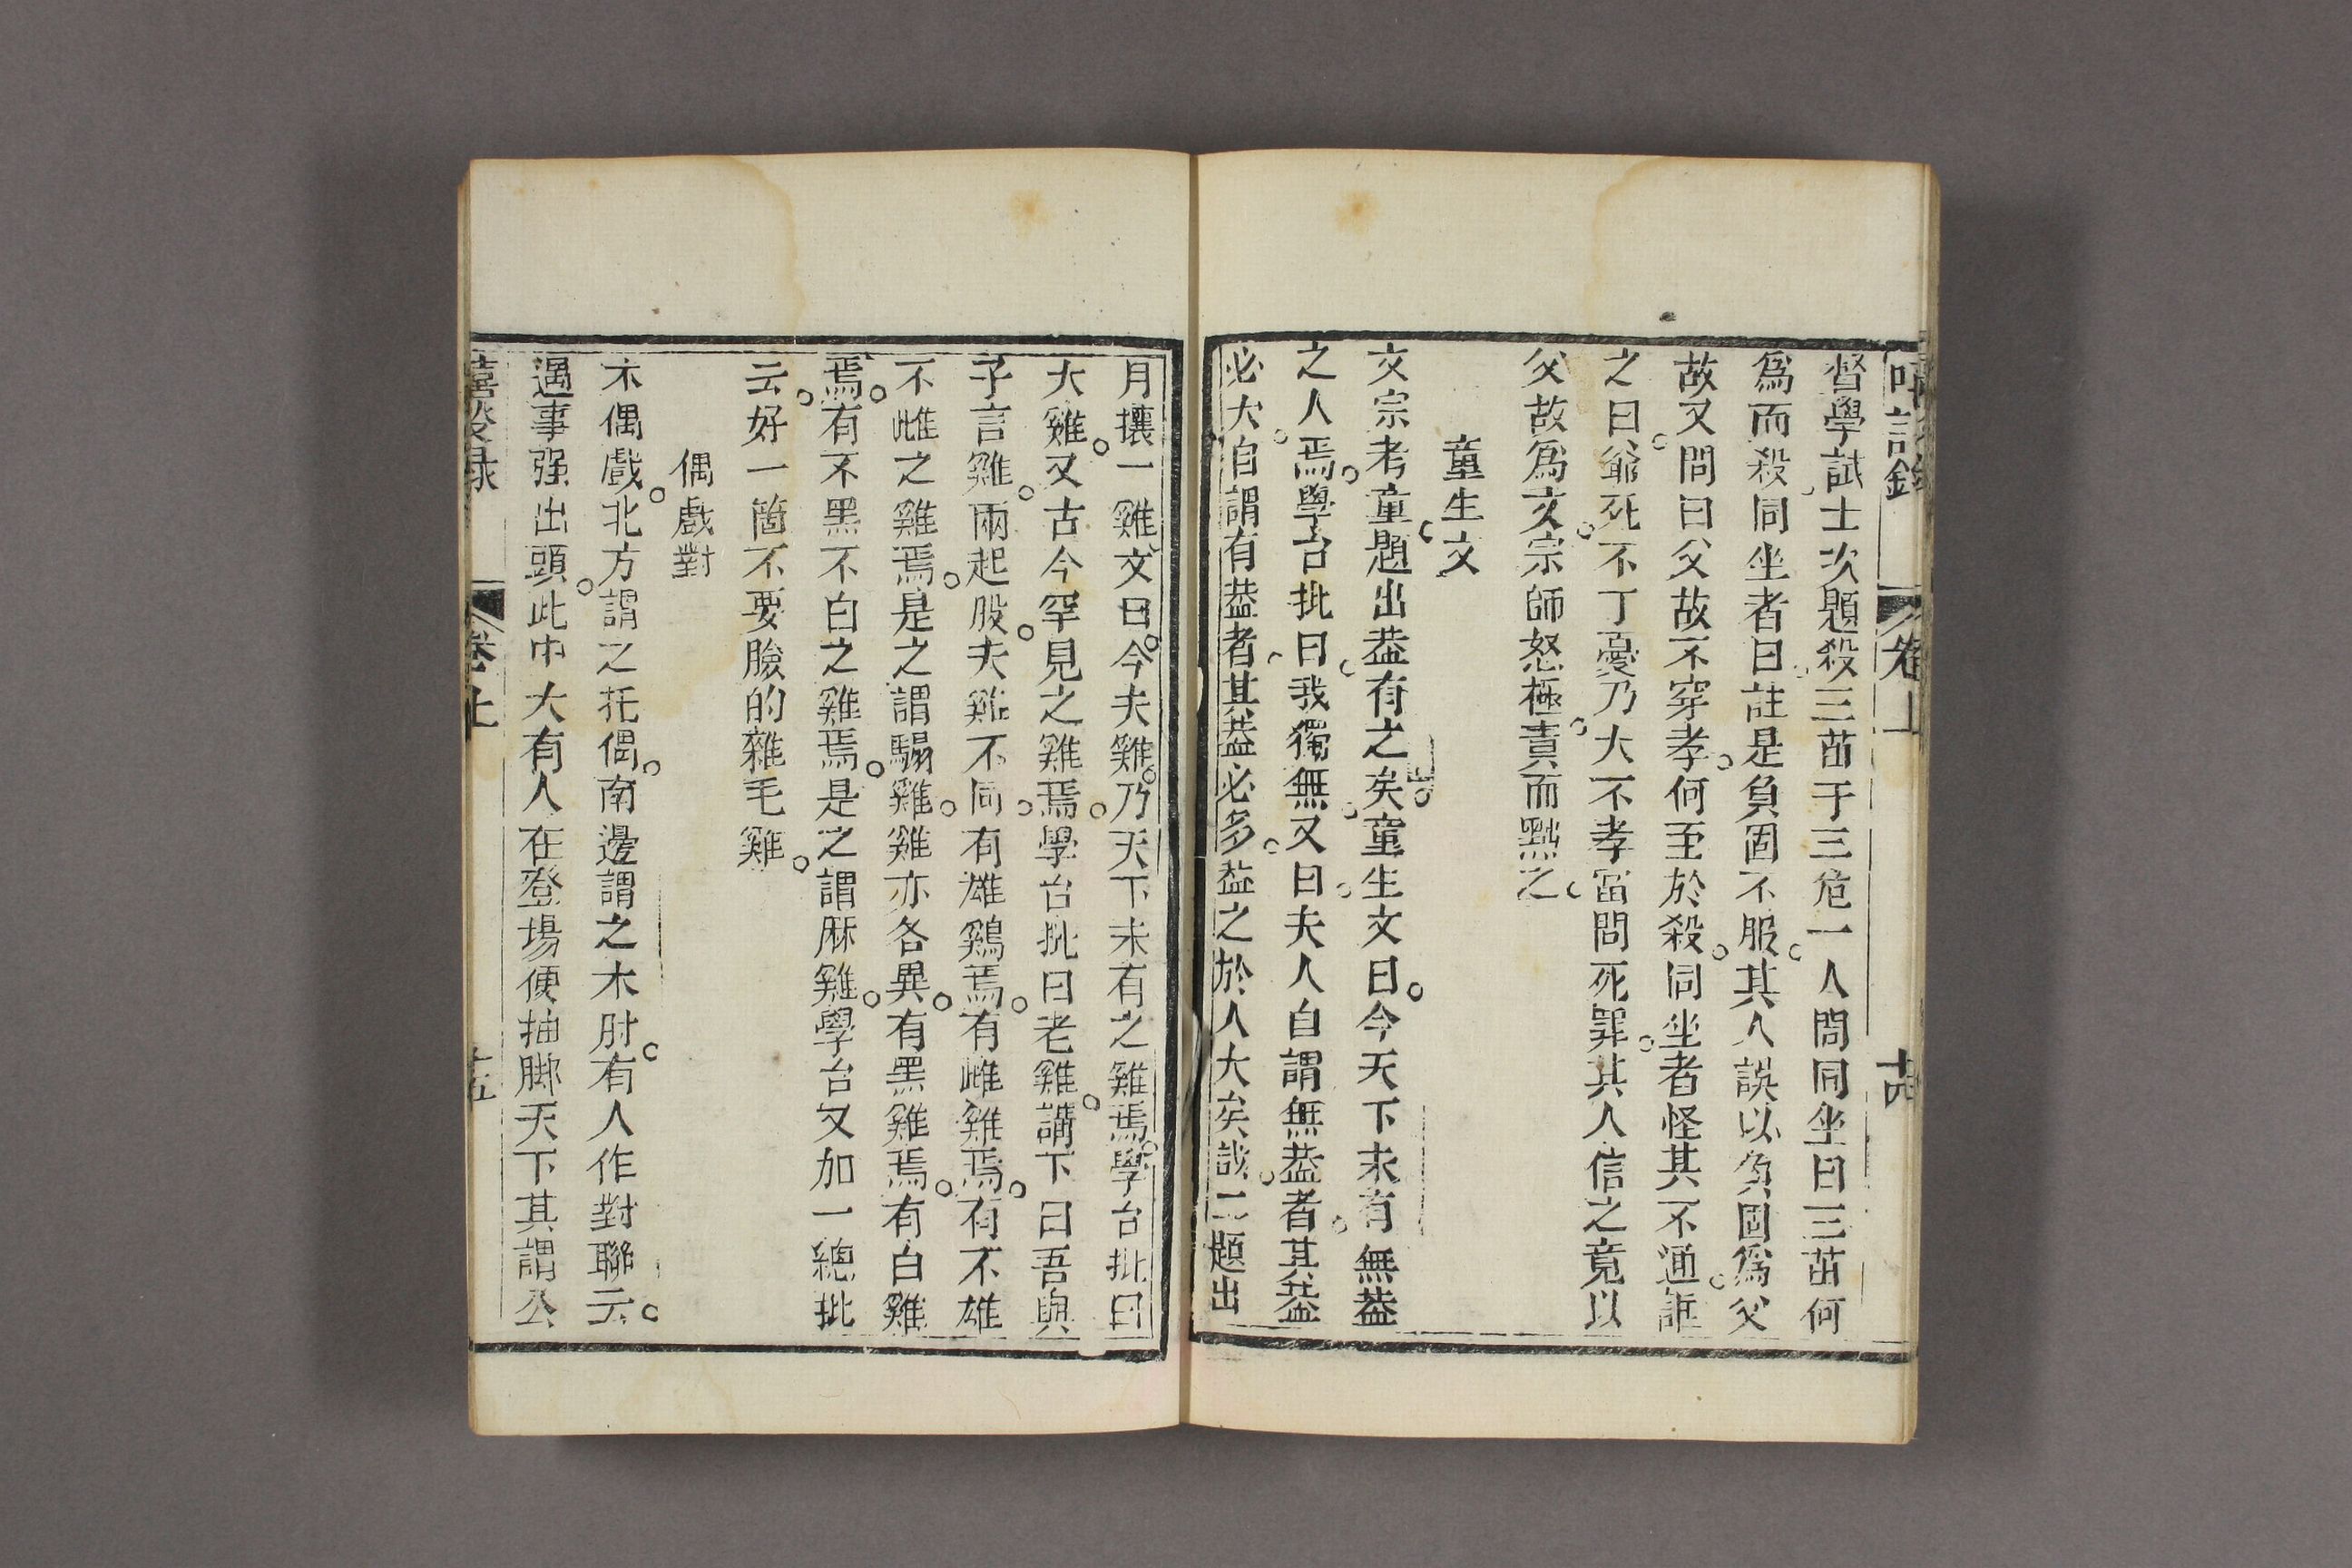 督學試士次題殺三苗于三危一人問同坐曰三苗何
爲而殺同坐者曰註是負固不服其人誤以負固爲父
故又問曰父故不穿孝何至於殺同坐者怪其不通誑
之曰爺死不丁憂乃大不孝當問死罪其人信之竟以
父故爲文宗師怒極責而黜之
童生文
文宗考童題出葢有之矣童生文曰今天下未有無葢
之人焉學台批曰我獨無又曰夫人自謂無葢者其葢
必大自謂有葢者其葢必多葢之於人大矣哉二題出
月攘一雞文曰今夫雞乃天下未有之雞焉學台批曰
大雞又古今罕見之雞焉學台批曰老雞講下曰吾與
子言雞兩起股夫雞不同有雄鷄焉有雌雞焉有不雄
不雌之雞焉是之謂騸雞雞亦各異有黑雞焉有白雞
焉有不黑不白之雞焉是之謂麻雞學台又加一總批
云好一箇不要臉的雜毛雞
偶戲對
木偶戲北方謂之托偶南邊謂之木肘有人作對聯云
遇事强出頭此中大有人在登場便抽脚天下其謂公
嘻談録
卷上
十五
卷上